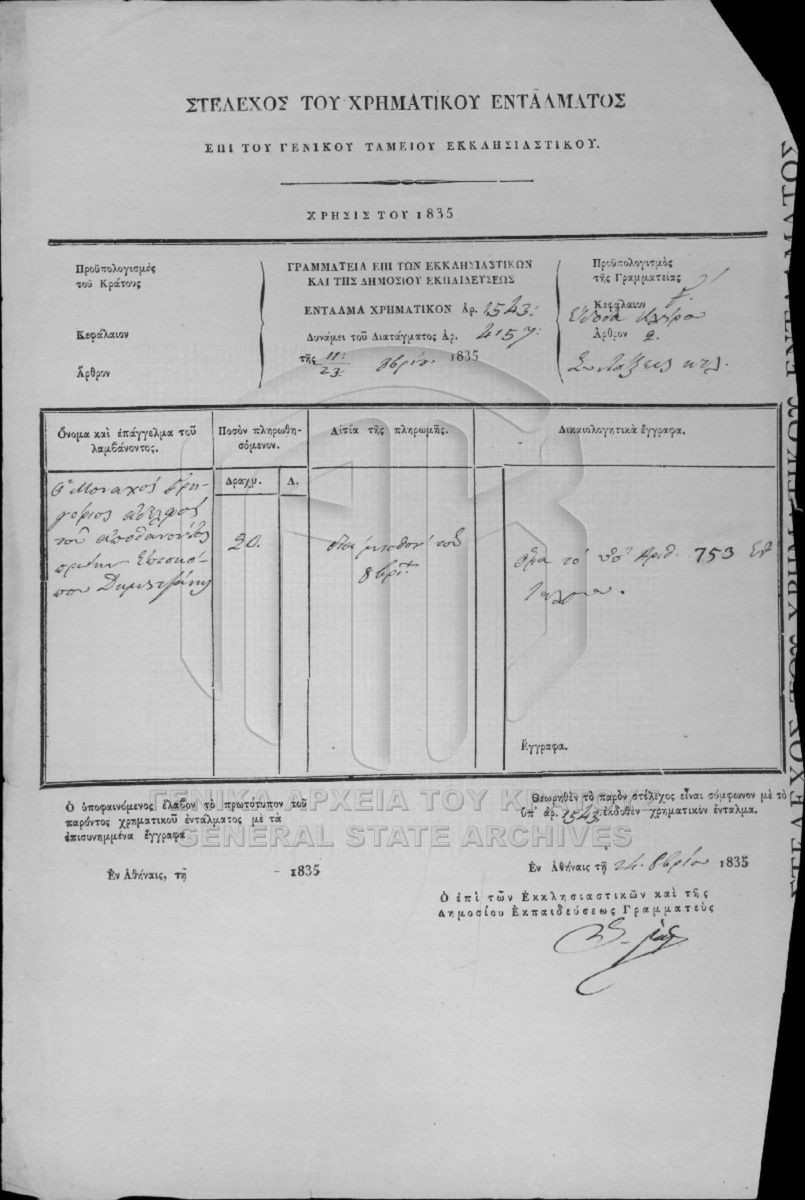 ΣΤΕΛΕΧΟΣ ΤΟΥ ΧΡΗΜΑΤΙΚΟΥ ΕΝΤΑΛΜΑΤΟΣ
ΕΠΙ ΤΟΥ ΓΕΝΙΚΟΥ ΤΑΜΕΙΟΥ ΕΚΚΛΗΣΙΑΣΤΙΚΟΥ.
ΧΡΗΣΙΣ ΤΟΥ 1835
Προϋπολογισμὸς
τοῦ Κράτους
Κεφάλαιον
Ἄρθρον
ΓΡΑΜΜΑΤΕΙΑ ΕΠΙ ΤΩΝ ΕΚΚΛΗΣΙΑΣΤΙΚΩΝ
ΚΑΙ ΤΗΣ ΔΗΜΟΣΙΟΥ ΕΚΠΑΙΔΕΥΣΕΩΣ
ΕΝΤΑΛΜΑ ΧΡΗΜΑΤΙΚΟΝ ΑΡ. 1543.
Δυνάμει τοῦ Διατάγματος Ἀρ. 4157.
τῆς 11/23 8βρίου 1835
Προϋπολογισμὸς
τῆς Γραμματείας
Κεφάλαιον
Ἔξοδα Κλήρου
Ἄρθρον 2.
Συντάξεις κτλ.
Ὄνομα καὶ ἐπάγγελμα τοῦ
λαμβάνοντος.
Ποσὸν πληρωθη-
σόμενον.
Δραχμ. Λ.
Αἰτία τῆς πληρωμῆς.
Δικαιολογητικὰ ἔγγραφα.
Ὁ Μοναχός Γρη-
γόριος ἀδελφός
τοῦ ἀποθανόντος
πρώην Ἐπισκό-
που Δημητζάνης
20.
διά μισθόν τοῦ
8βρίου
Ὅρα τό ὑπ' Ἀριθ. 753 ἔν
ταλμα.
Ἔγγραφα.
Ὁ ὑποφαινόμενος ἔλαβον τὸ πρωτότυπον τοῦ
παρόντος χρηματικοῦ ἐντάλματος μὲ τὰ
ἐπισυνημμένα ἔγγραφα
Ἐν Ἀθήναις, τῇ 1835
Θεωρηθὲν τὸ παρὸν στέλεχος εἶναι σύμφωνον μὲ τὸ
ὑπ' ἀρ. 1543 ἐκδοθὲν χρηματικὸν ἔνταλμα.
Ἐν Ἀθήναις τῇ 24 8βρίου 1835
Ὁ ἐπὶ τῶν Ἐκκλησιαστικῶν καὶ τῆς
Δημοσίου Ἐκπαιδεύσεως Γραμματεὺς
ΓΕΝΙΚΑ ΑΡΧΕΙΑ ΤΟΥ ΚΡΑΤΟΥΣ
GENERAL STATE ARCHIVES
ΣΤΕΛΕΧΟΣ ΤΟΥ ΧΡΗΜΑΤΙΚΟΥ ΕΝΤΑΛΜΑΤΟΣ